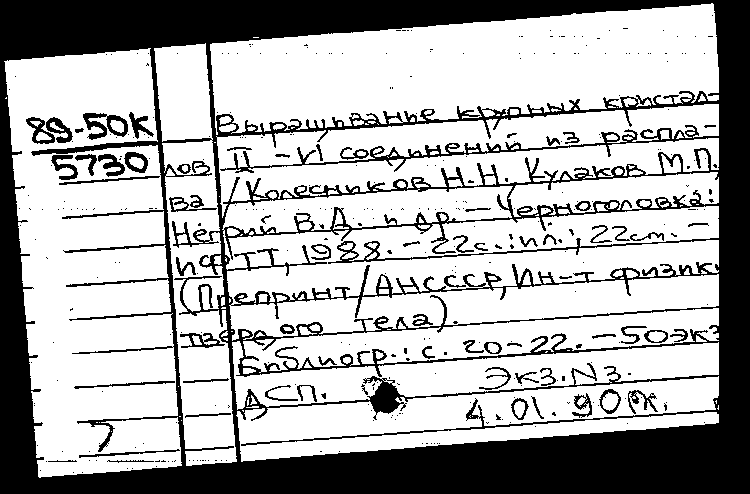 89-50К
5730
Выращивание крупных кристал-
лов II-VI соединений из распла-
ва /Колесников Н.Н. Кулаков М.П.,
Негрий В.Д. и др. - Черноголовка:
ИФТТ, 1988. - 22с.: ил.; 22см. -
(Препринт/АНСССР, Ин-т физики
твердого тела).
Библиогр.: с. 20-22. - 50экз
ДСП.
Экз. N3.
4.01.90
7